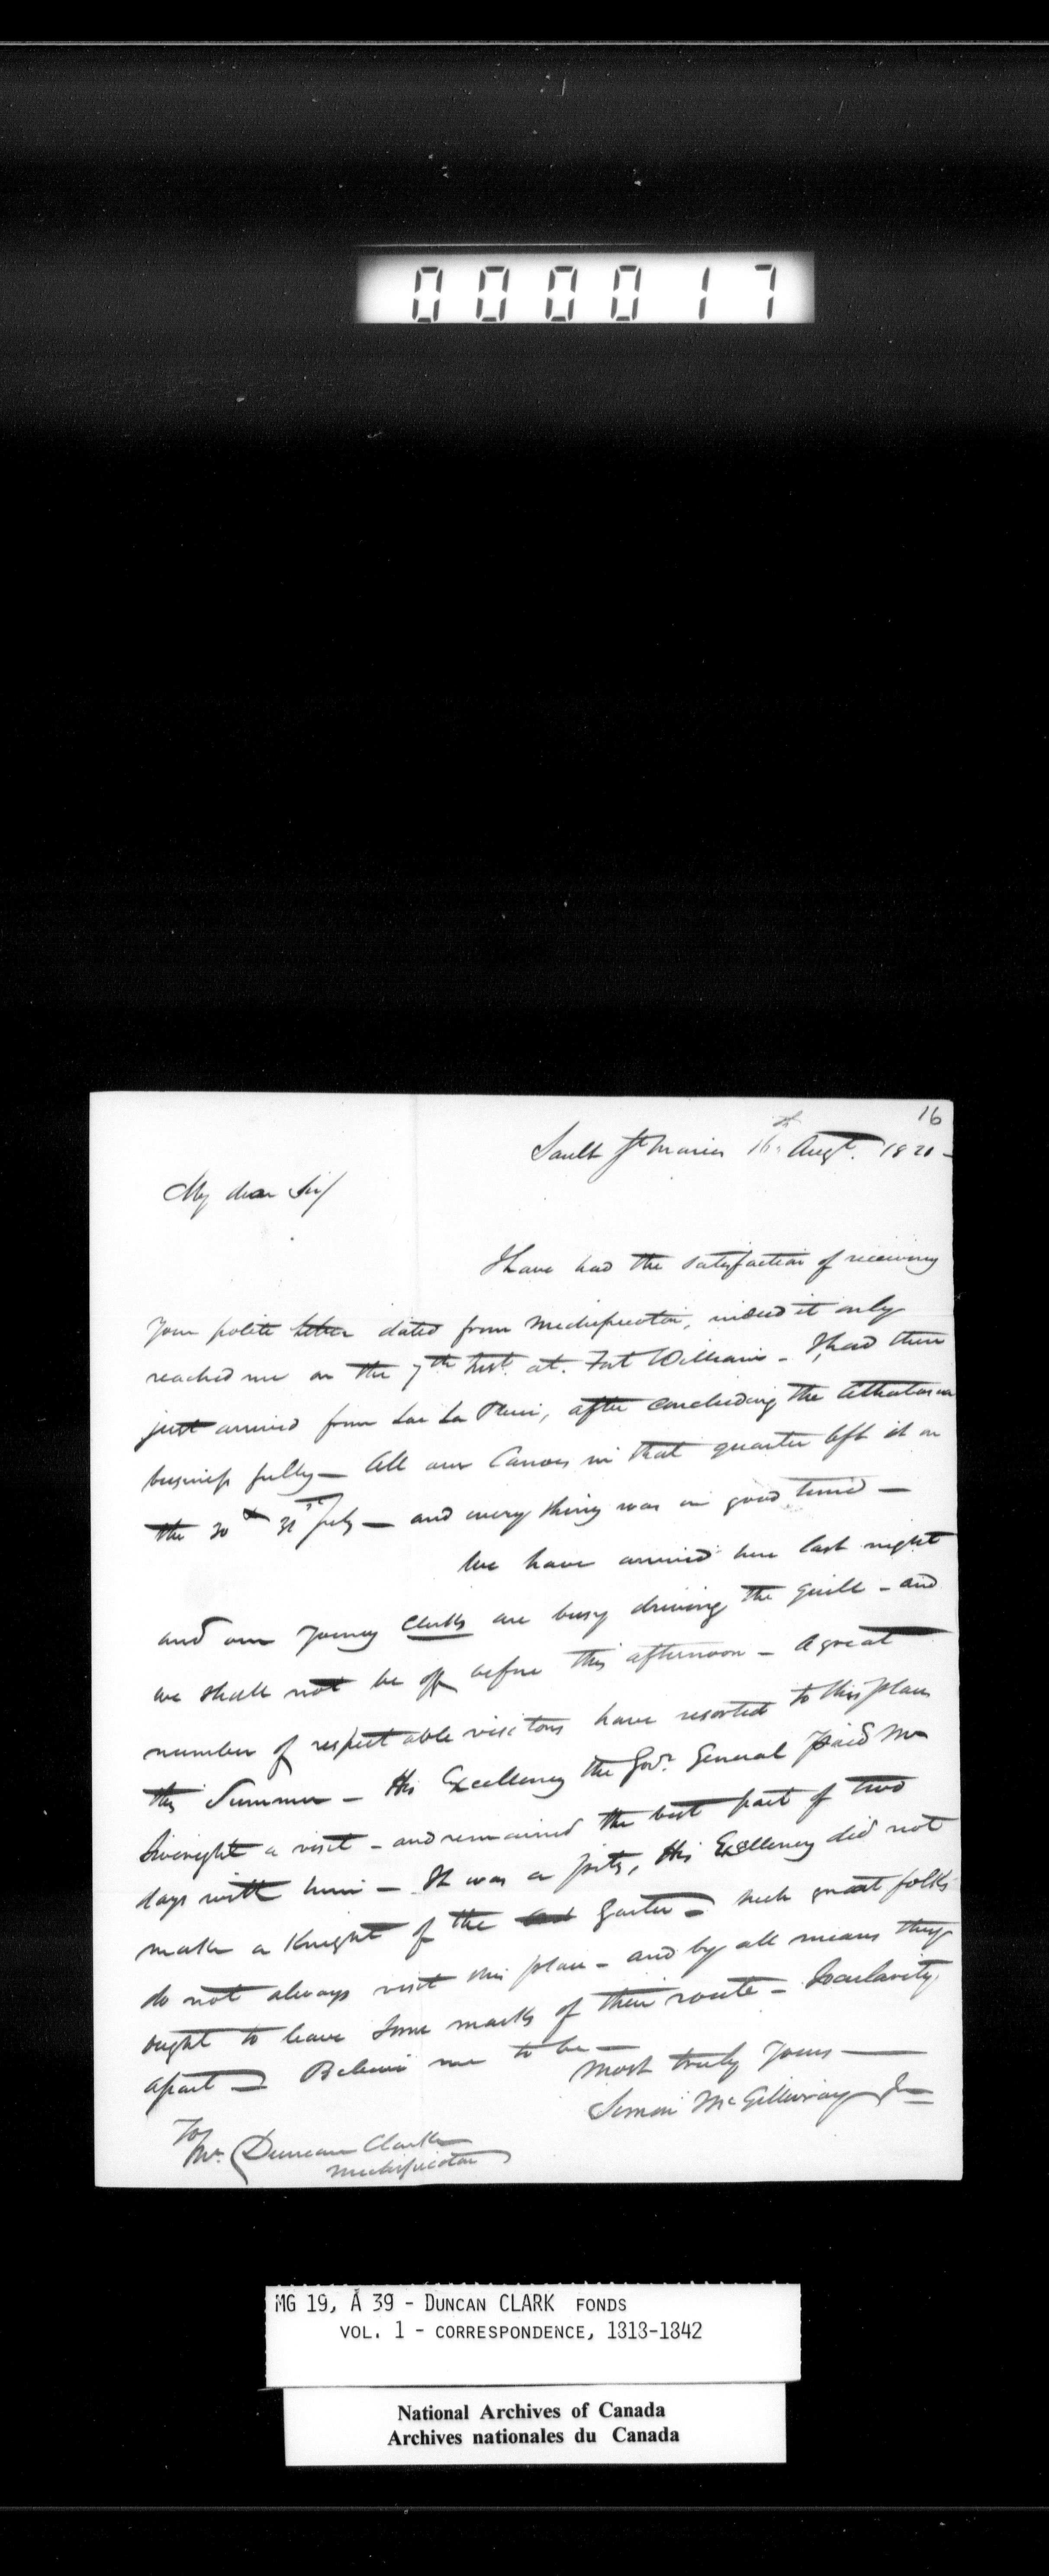 000017
16
Sault St Maries 16th Augt. 1820 –
My dear Sir/
I have had the satisfaction of receiving
your polite letter dated from Michipicotin, indeed it only
reached me on the 7th Inst. at. Fort William – I had then
just arrived from Lac La Pluie, after concluding the Athabasca
business fully – All our Canoes in that quarter left it on
the 30 & 31st July – and every thing was in good
We have arrived here last night
and our young Clerks are busy driving the quill – and
we shall not be off before this afternoon – A great
number of respectable visitors have resorted to this place
this Summer – His Excellency the Govr. General paid Mr
Siveright a visit – and remained the best part of two
days with him – It was a pity, His Excellency did not
make a Knight of the Garter – such great folks
do not always visit this place – and by all means they
ought to leave some marks of their route – Jocularity
apart – Believe me to be –
most truly yours –
Simon McGillivray Jr
To
Mr. Duncan Clarke
Michipicotin
MG 19, A 39 - DUNCAN CLARK FONDS
VOL. 1 - CORRESPONDENCE, 1813-1842
National Archives of Canada
Archives nationales du Canada